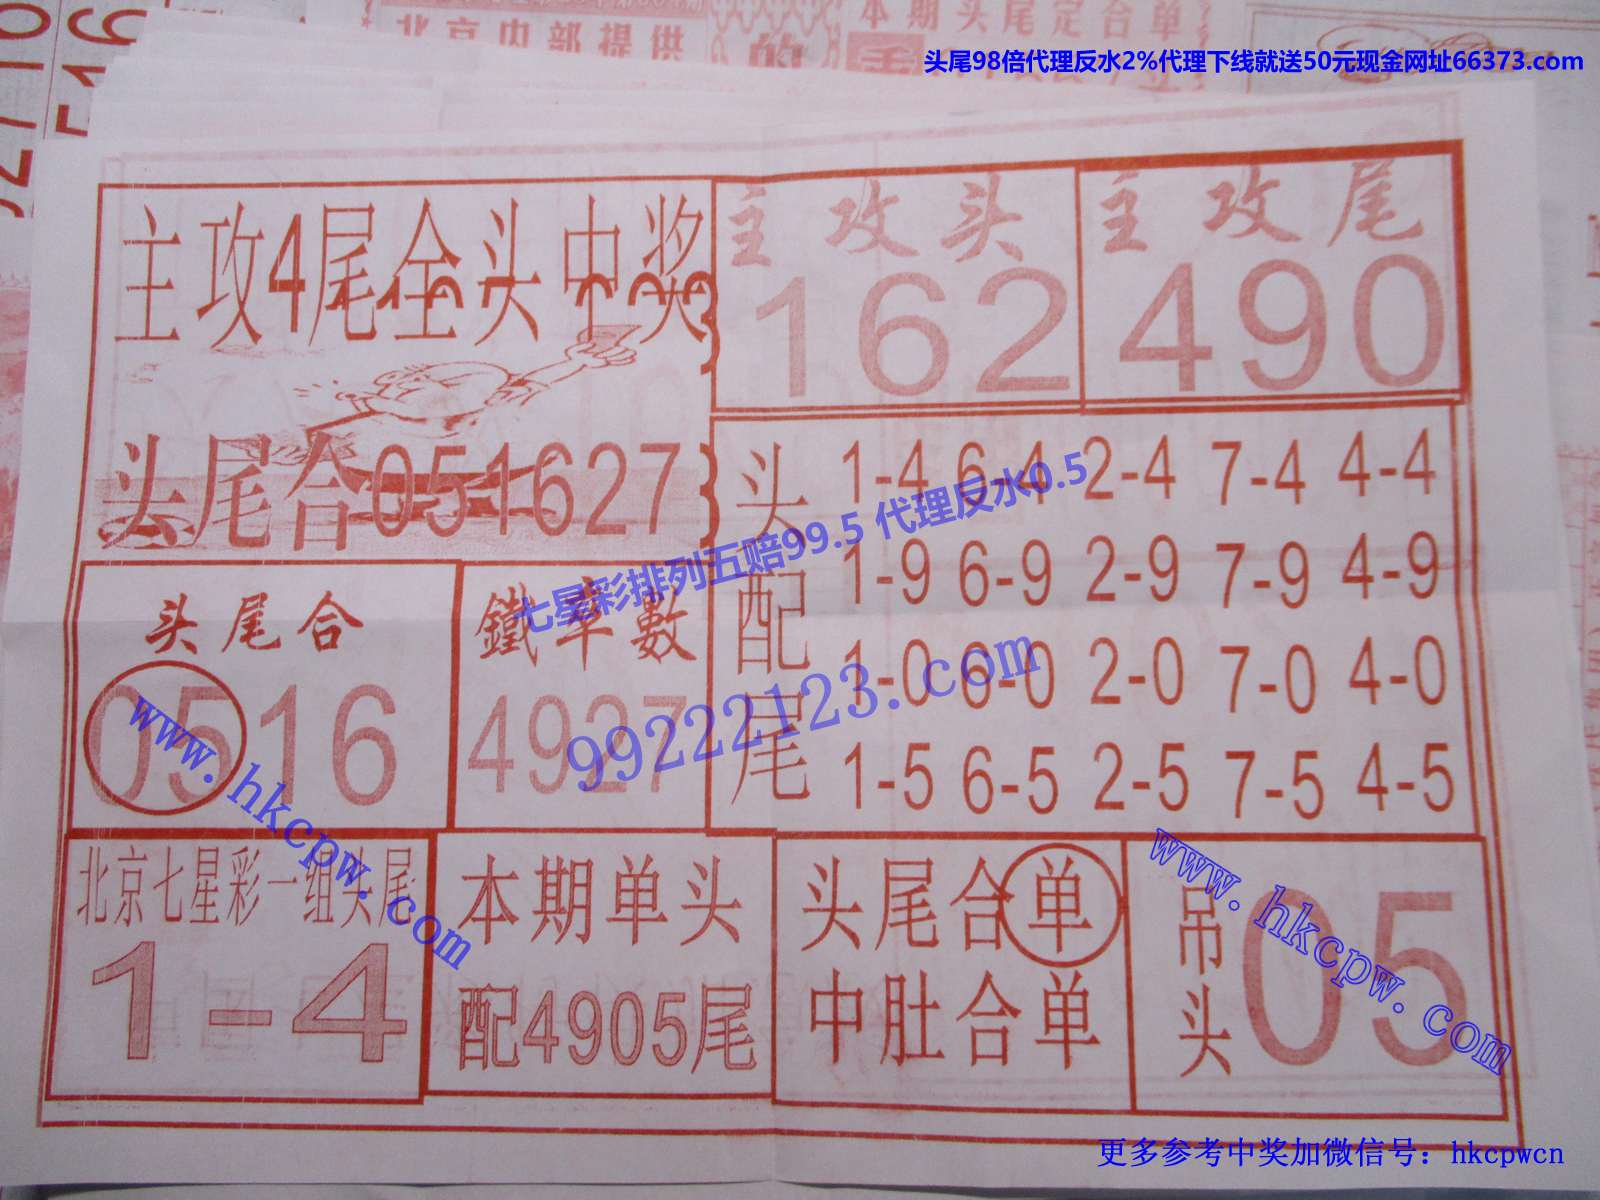 北京内部提供
本期头尾定合单
的
头尾98倍代理反水2%代理下线就送50元现金网址66373.com
主攻4尾全头中奖
头尾合051627
主攻头
162
主攻尾
490
头配尾
1-4 6-4 2-4 7-4 4-4
1-9 6-9 2-9 7-9 4-9
1-0 6-0 2-0 7-0 4-0
1-5 6-5 2-5 7-5 4-5
七星彩排列五赔99.5 代理反水0.5
99222123.com
头尾合
0516
鐵率數
4927
www.hkcpw.com
北京七星彩一组头尾
1-4
本期单头
配4905尾
头尾合单
中肚合单
吊头
05
www.hkcpw.com
更多参考中奖加微信号：hkcpwcn